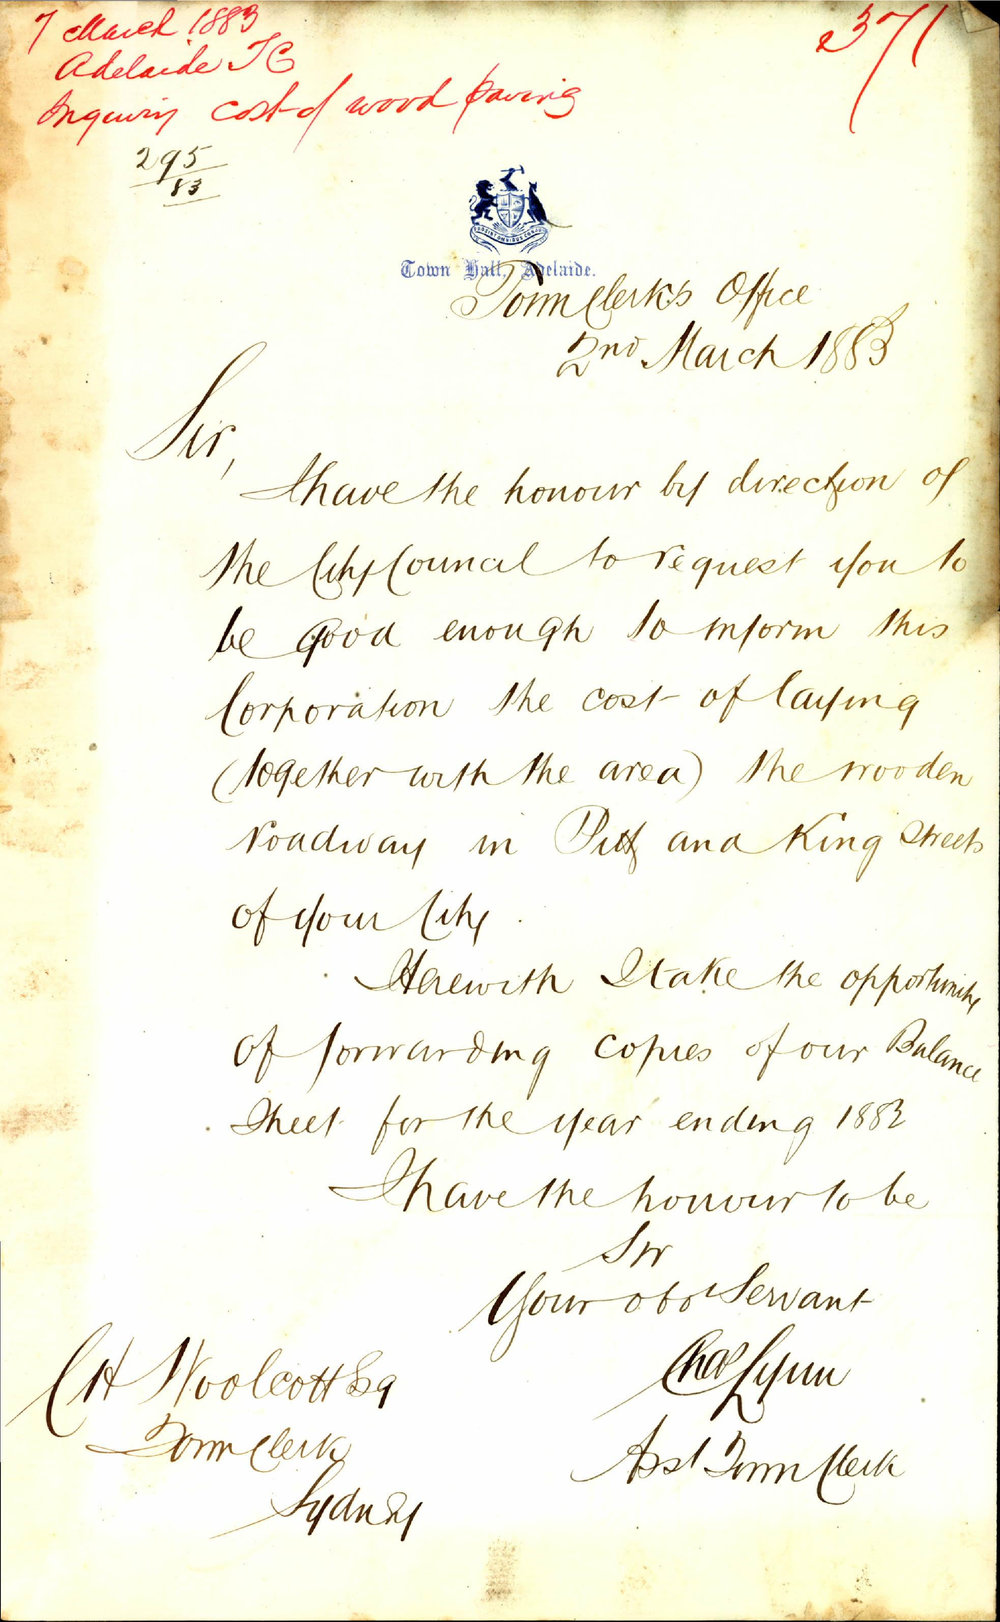 7 March 1883
Adelaide T C
Inquiry cost of wood paving
371
295/83
Town Hall, Adelaide.
Town Clerk's Office
2nd March 1883
Sir,
I have the honour by direction of
the City Council to request you to
be good enough to inform this
Corporation the cost of laying
(together with the area) the wooden
roadway in Pitt and King Streets
of your City.
Herewith I take the opportunity
of forwarding copies of our Balance
Sheet for the year ending 1882
I have the honour to be
Sir
Your obt Servant
Chas Lynn
Asst Town Clerk
C H Woolcott Esq
Town Clerk
Sydney